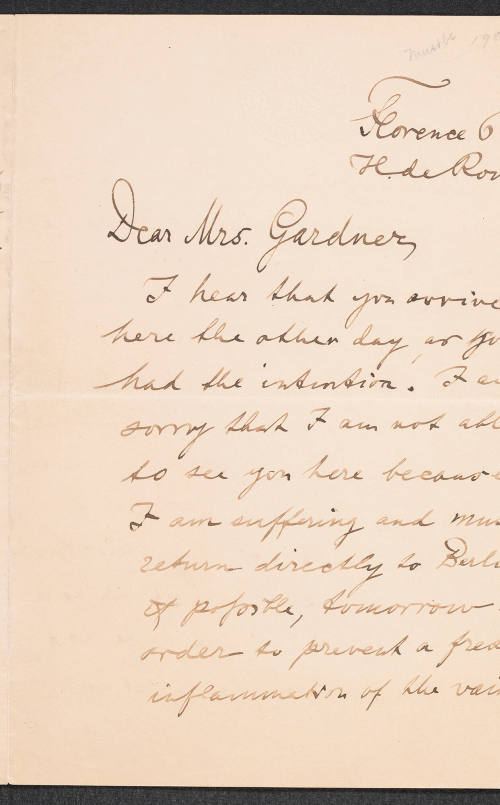 Florence 6
H. de Rou
Dear Mrs. Gardner,
I hear that you arrive
here the other day, as yo
had the intention. I am
sorry that I am not abl
to see you here because
I am suffering and mus
return directly to Berli
if possible, tomorrow
order to prevent a fre
inflammation of the